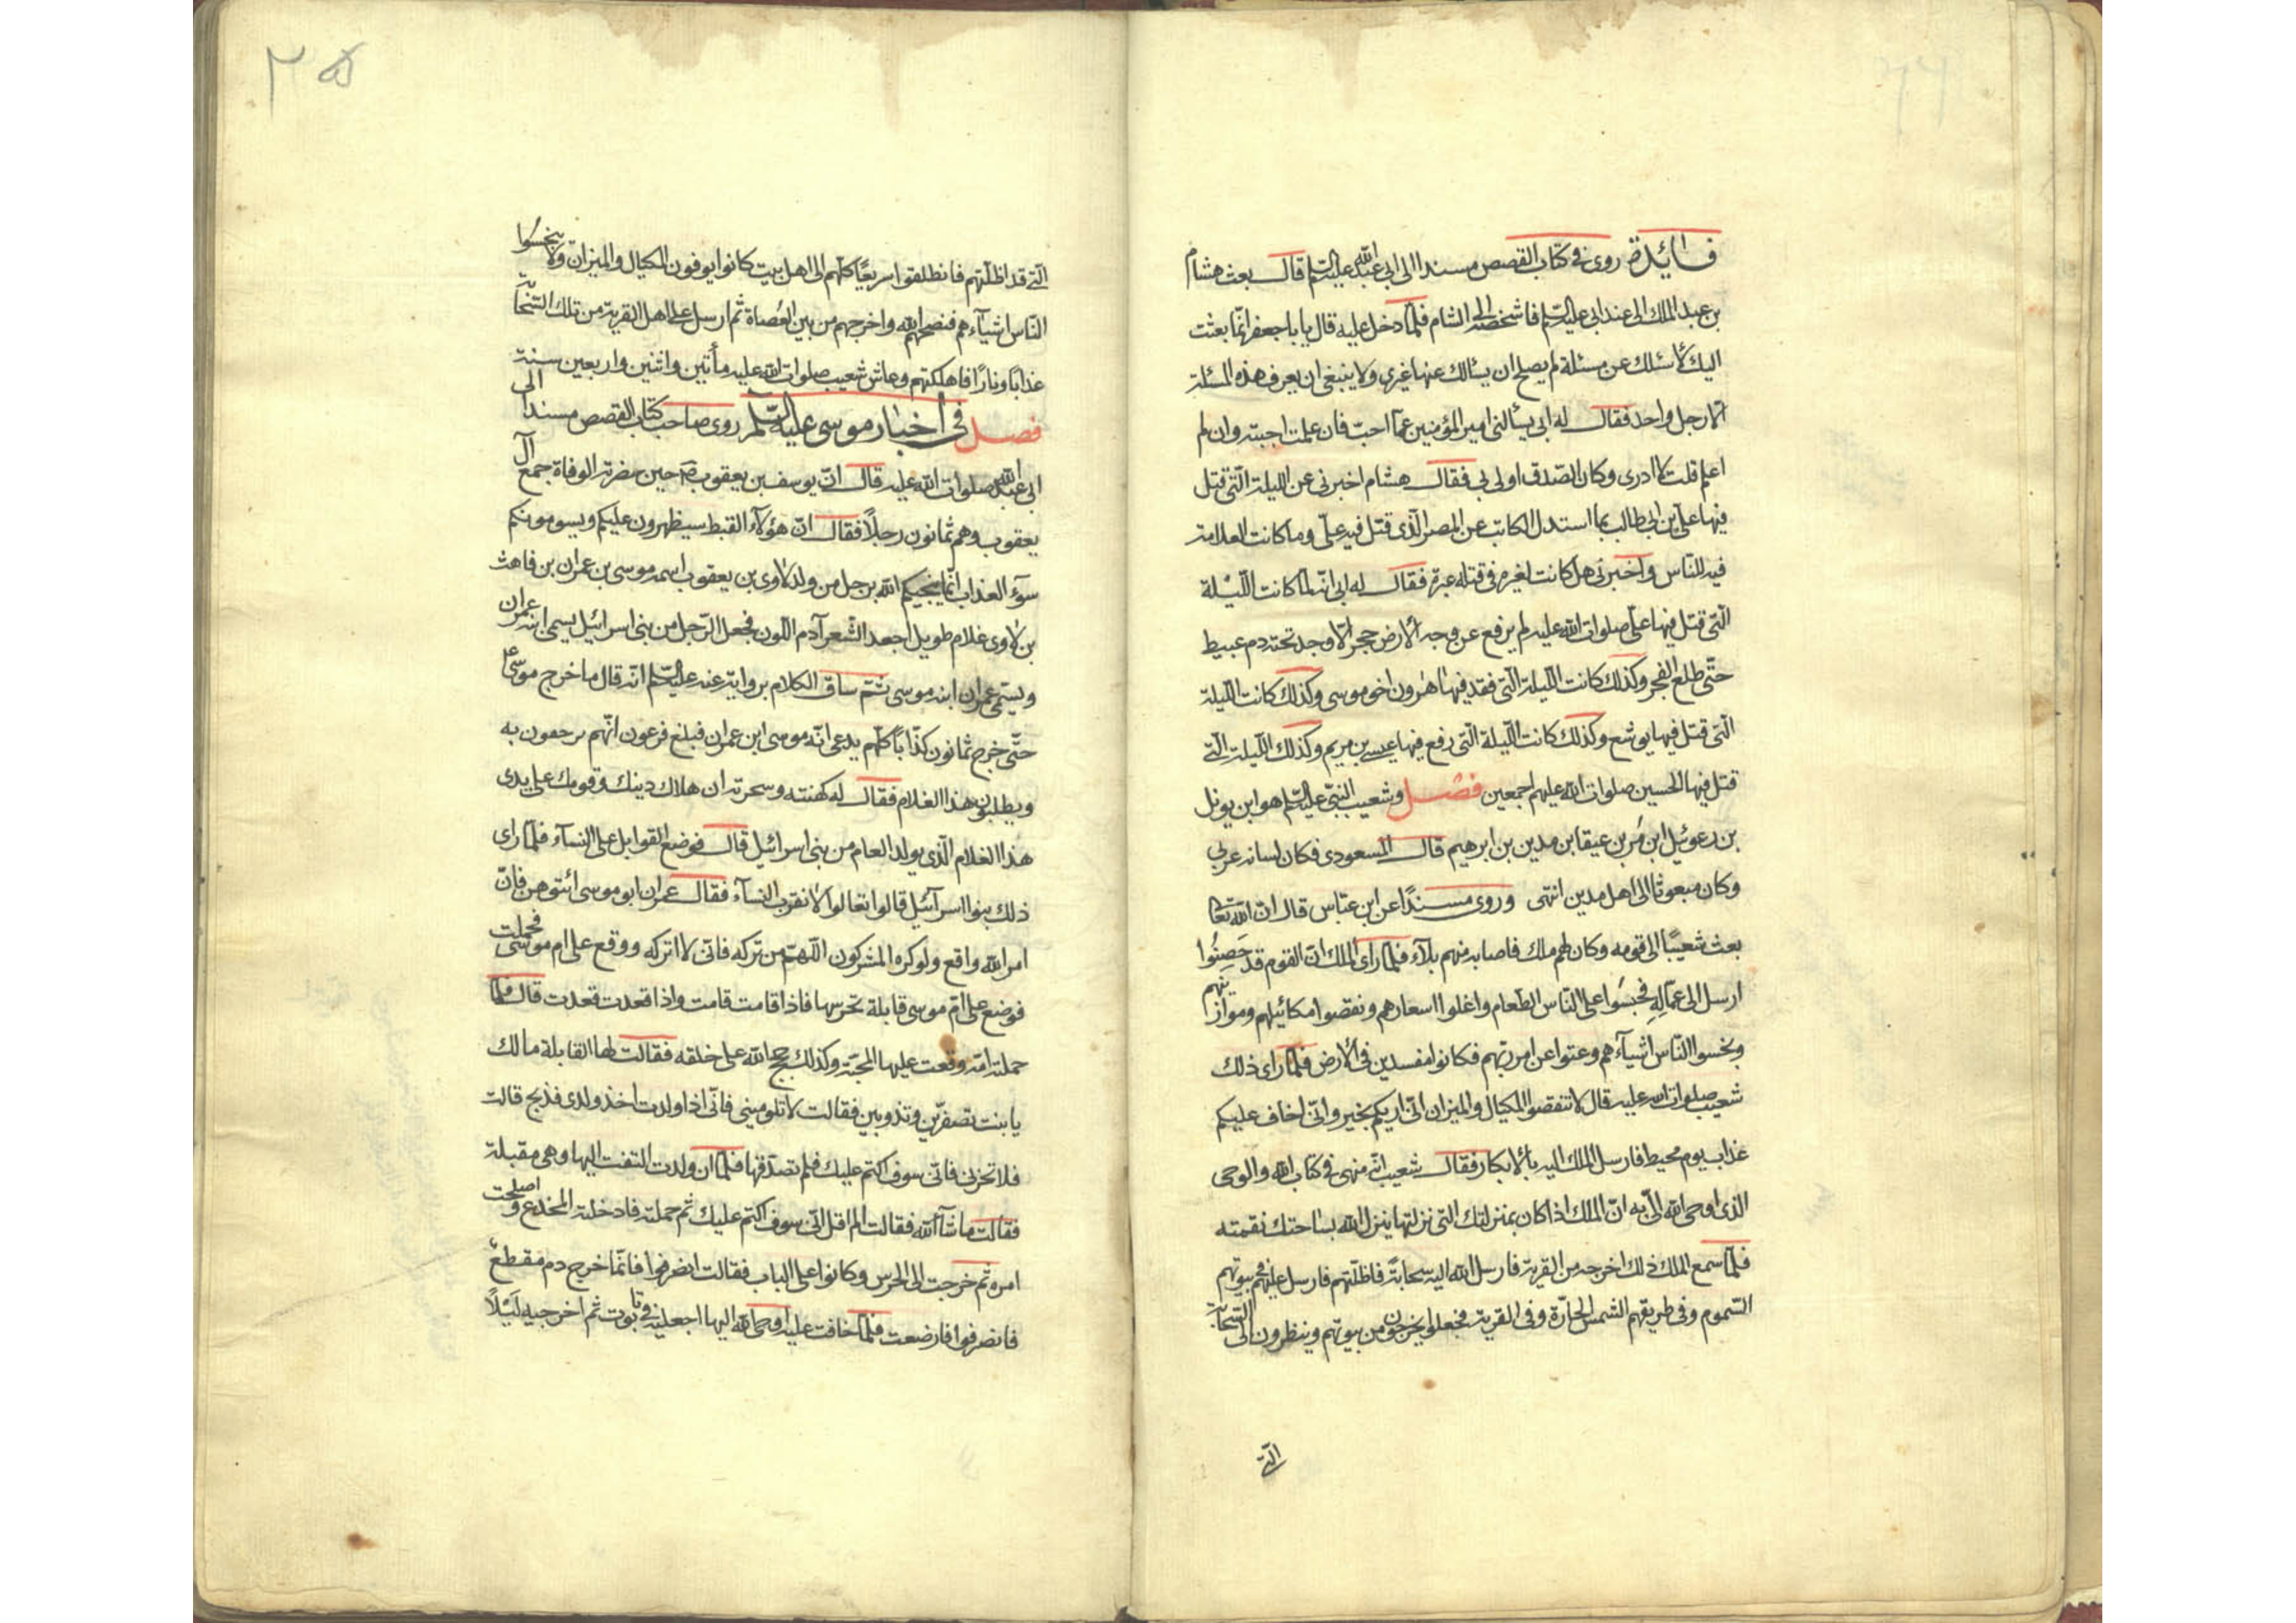 فائدة روى في كتاب القصص مسندا الى ابى عبد الله عليه السلم قال بعث هشام
بن عبد الملك الى عند ابى عليه السلم فاشخصه الى الشام فلما دخل عليه قال يا با جعفر انما بعثت
اليك لاسئلك عن مسئلة لم يصلح ان يسألك عنها غيرى ولا ينبغى ان يعرف هذه المسئلة
الا رجل واحد فقال له ابى يسألنى امير المؤمنين عما احب فان علمت اجبته وان لم
اعلم قلت لا ادرى وكان الصدق اولى بى فقال هشام اخبرنى عن الليلة التى قتل
فيها على بن ابى طالب بما استدل الكائب عن المصر الذى قتل فيه على وما كانت العلامة
فيه للناس واخبرنى هل كانت لغيره فى قتله عبرة فقال له ابى انه لما كانت الليلة
التى قتل فيها على صلوات الله عليه لم يرفع عن وجه الارض حجر الا وجد تحته دم عبيط
حتى طلع الفجر وكذلك كانت الليلة التى فقد فيها هرون اخو موسى وكذلك كانت الليلة
التى قتل فيها يوشع وكذلك كانت الليلة التى رفع فيها عيسى بن مريم وكذلك الليلة التى
قتل فيها الحسين صلوات الله عليهم اجمعين فصل وشعيب النبى عليه السلم هو ابن يونل
بن رعوئيل ابن مر بن عيقا بن مدين بن ابرهيم قال المسعودى فكان لسانه عربى
وكان مبعوثا الى اهل مدين انتهى وروى مسندًا عن ابن عباس قال ان الله تعا
بعث شعيبًا الى قومه وكان لهم ملك فاصابه منهم بلآء فلما راى الملك ان القوم قد خصبوا
ارسل الى عماله فحبسوا على الناس الطعام واغلوا اسعارهم ونقصوا مكائيلهم وموازينهم
وبخسوا الناس اشيآءهم وعتوا عن امر ربهم فكانوا مفسدين فى الارض فلما راى ذلك
شعيب صلوات الله عليه قال لا تنقصوا المكيال والميزان انى اريكم بخير وانى اخاف عليكم
عذاب يوم محيط فارسل الملك اليه بالانكار فقال شعيب انه منهى فى كتاب الله والوحى
الذى اوحى الله الى به ان الملك اذا كان بمنزلتك التى نزلتها ينزل الله بساحتك نقمته
فلما سمع الملك ذلك اخرجه من القرية فارسل الله اليه سحابة فاظلتهم فارسل عليهم فى بيوتهم
السموم وفى طريقهم الشمس الحارة وفى القرية فجعلوا يخرجون من بيوتهم وينظرون الى السحابة
التى
٣٥
التى قد اظلتهم فانطلقوا سريعًا كلهم الى اهل بيت كانوا يوفون المكيال والميزان ولا يبخسوا
الناس اشيآءهم فنصحهم الله واخرجهم من بين العصاة ثم ارسل على اهل القرية من تلك السحابة
عذابًا ونارًا فاهلكتهم وعاش شعيب صلوات الله عليه مأتين واثنين واربعين سنة
فصل فى اخبار موسى عليه السلم روى صاحب كتاب القصص مسندا الى
ابى عبد الله صلوات الله عليه قال ان يوسف بن يعقوب ص حين حضرته الوفاة جمع آل
يعقوب وهم ثمانون رجلًا فقال ان هؤلآء القبط سيظهرون عليكم ويسومونكم
سوء العذاب انما ينجيكم الله برجل من ولد لاوى بن يعقوب اسمه موسى بن عمران بن فاهث
بن لاوى غلام طويل اجعد الشعر آدم اللون فجعل الرجل من بنى اسرائيل يسمى ابنه عمران
ويسمى عمران ابنه موسى ثم ساق الكلام بروايته عنه عليه السلم انه قال ما خرج موسى
حتى خرج ثمانون كذابًا كلهم يدعى انه موسى ابن عمران فبلغ فرعون انهم يرجعون به
ويطلبون هذا الغلام فقال له كهنته وسحرته ان هلاك دينك وقومك على يدى
هذا الغلام الذى يولد العام من بنى اسرائيل قال فوضع القوابل على النسآء فلما راى
ذلك بنوا اسرآئيل قالوا تعالوا لا نقرب النسآء فقال عمران ابو موسى ائتوهن فان
امر الله واقع ولو كره المشركون اللهم من تركه فانى لا اتركه ووقع على ام موسى فحملت
فوضع على ام موسى قابلة تحرسها فاذا قامت قامت واذا قعدت قعدت قال فلما
حملته امه وقعت عليها المحبة وكذلك حجج الله على خلقه فقالت لها القابلة مالك
يا بنت تصفرين وتذوبين فقالت لا تلومينى فانى اذا ولدت اخذ ولدى فذبح قالت
فلا تحزنى فانى سوف اكتم عليك فلم تصدقها فلما ان ولدت التفت اليها وهى مقبلة
فقالت ما شآء الله فقالت الم اقل انى سوف اكتم عليك ثم حملته فادخلته المخدع واصلحت
امره ثم خرجت الى الحرس وكانوا على الباب فقالت انصرفوا فانما خرج دم مقطع
فانصرفوا فارضعته فلما خافت عليه اوحى الله اليها اجعليه فى تابوت ثم اخرجيه ليلًا